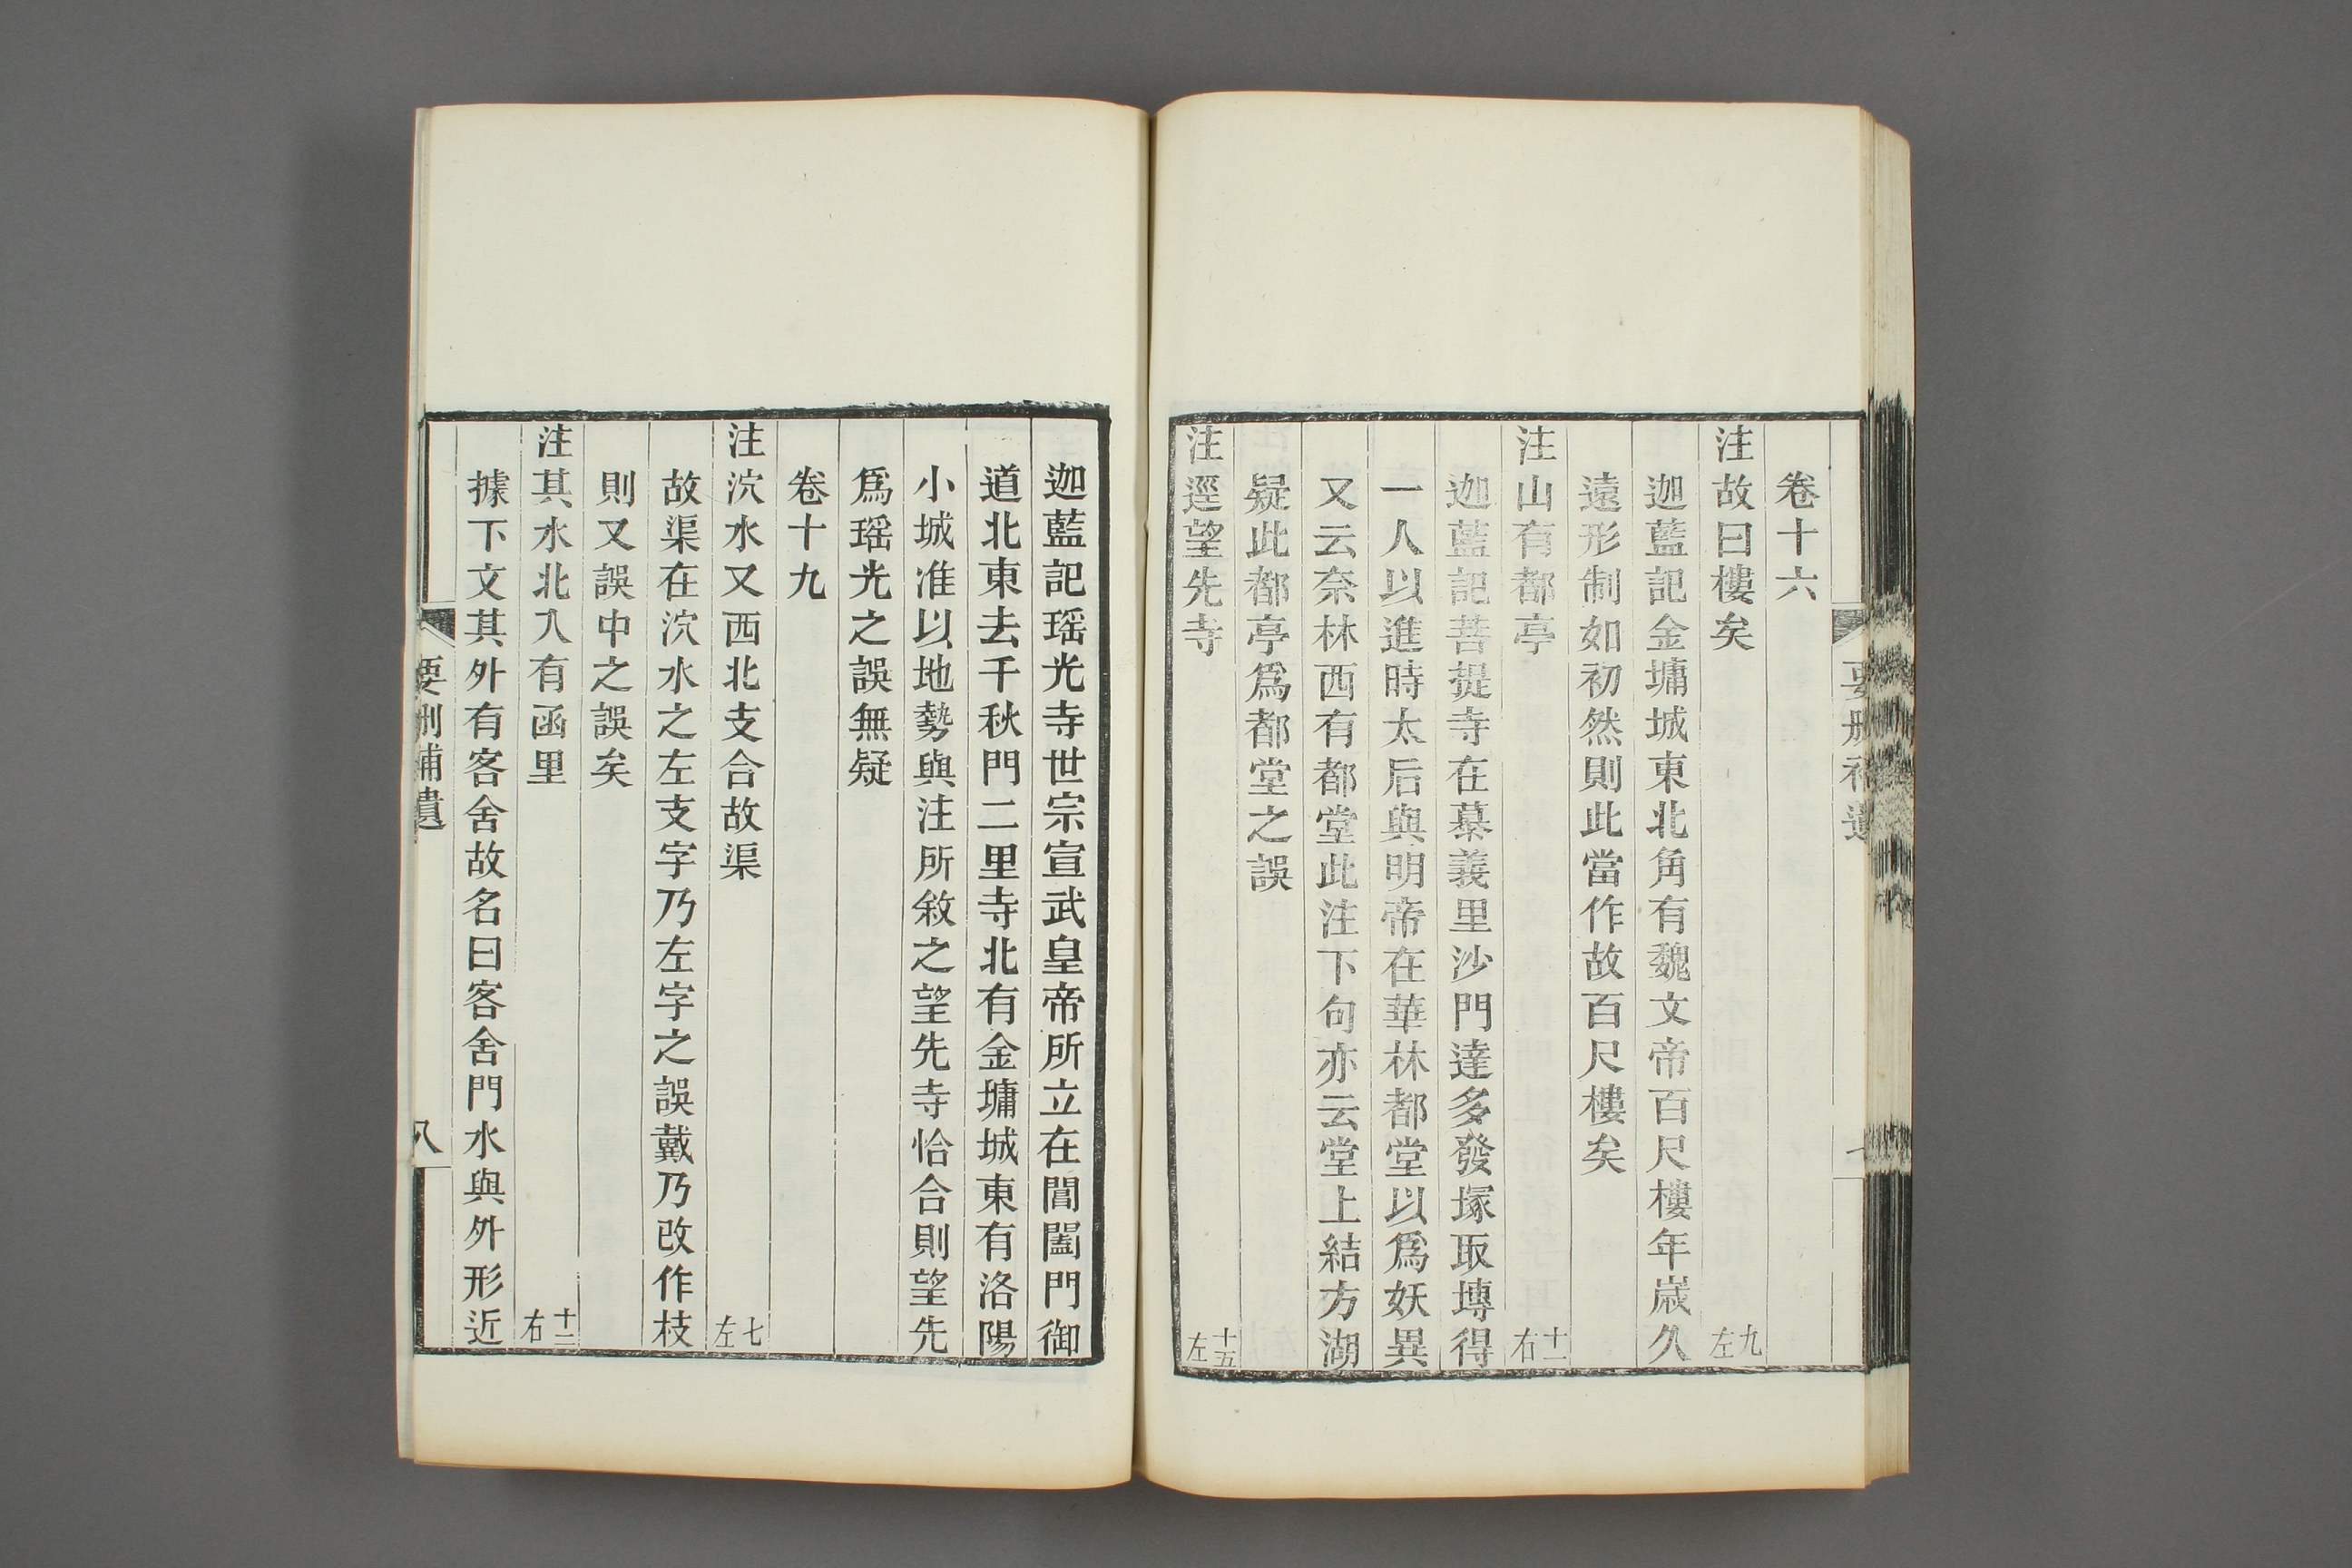 卷十六
注故曰樓矣 九左
迦藍記金墉城東北角有魏文帝百尺樓年歲久
遠形制如初然則此當作故百尺樓矣
注山有都亭 十一右
迦藍記菩提寺在慕義里沙門達多發塚取塼得
一人以進時太后與明帝在華林都堂以爲妖異
又云奈林西有都堂此注下句亦云堂上結方湖
疑此都亭爲都堂之誤
注逕望先寺 十五左
迦藍記瑶光寺世宗宣武皇帝所立在閶闔門御
道北東去千秋門二里寺北有金墉城東有洛陽
小城准以地勢與注所敘之望先寺恰合則望先
爲瑶光之誤無疑
卷十九
注泬水又西北支合故渠 七左
故渠在泬水之左支字乃左字之誤戴乃改作枝
則又誤中之誤矣
注其水北入有函里 十二右
據下文其外有客舍故名曰客舍門水與外形近
要刪補遺
八